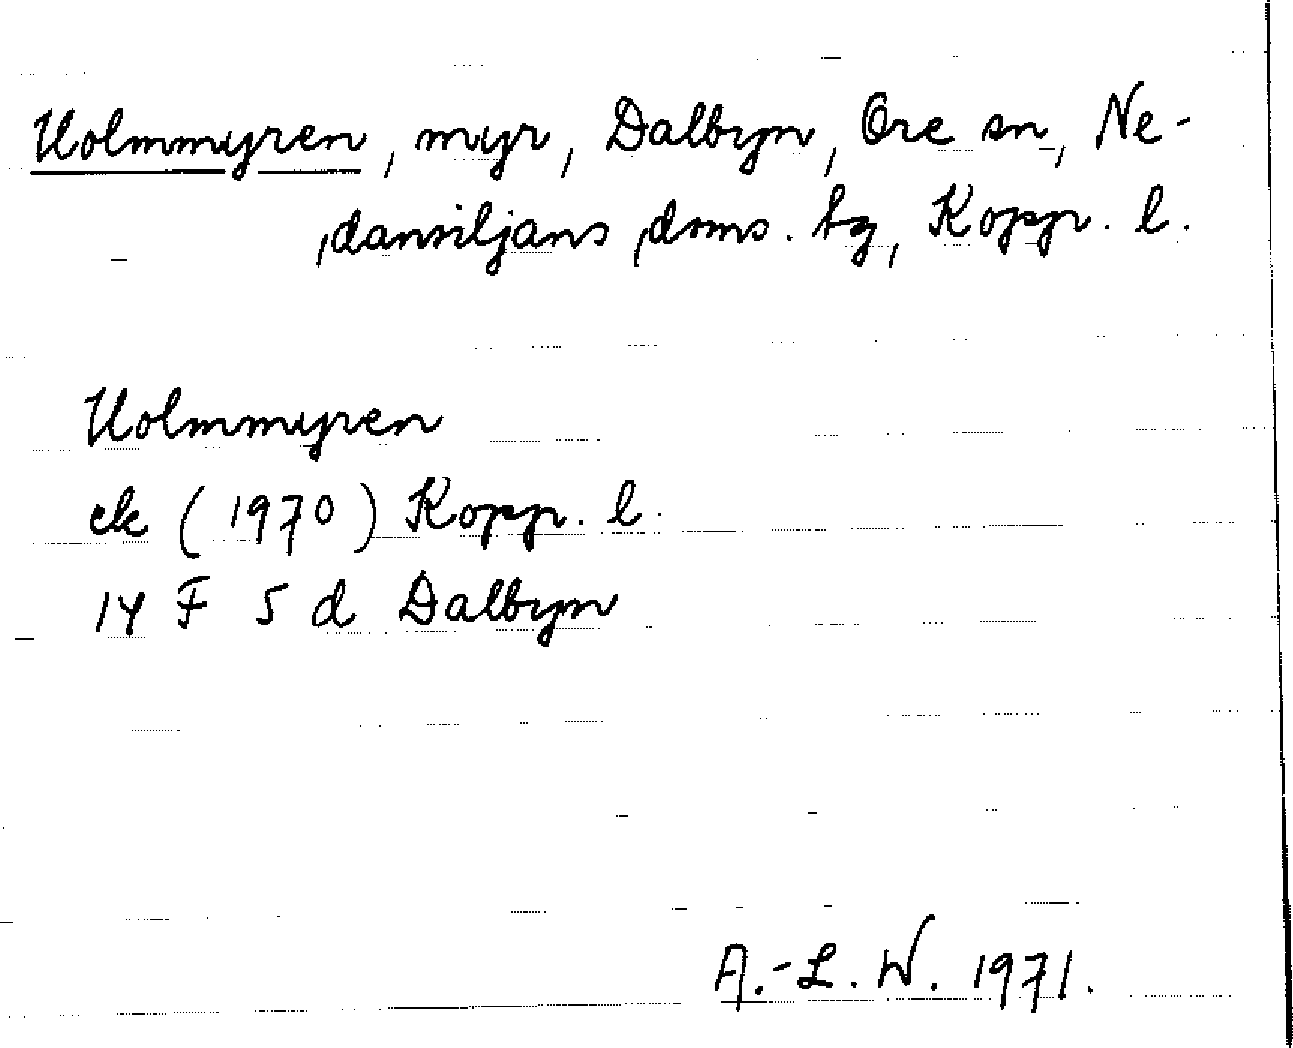 Holmmyren, myr, Dalbyn, Ore sn, Ne-
dansiljans doms. tg, Kopp. l.
Holmmyren
ek (1970) Kopp. l.
14 F 5 d Dalbyn
A.-L. W. 1971.